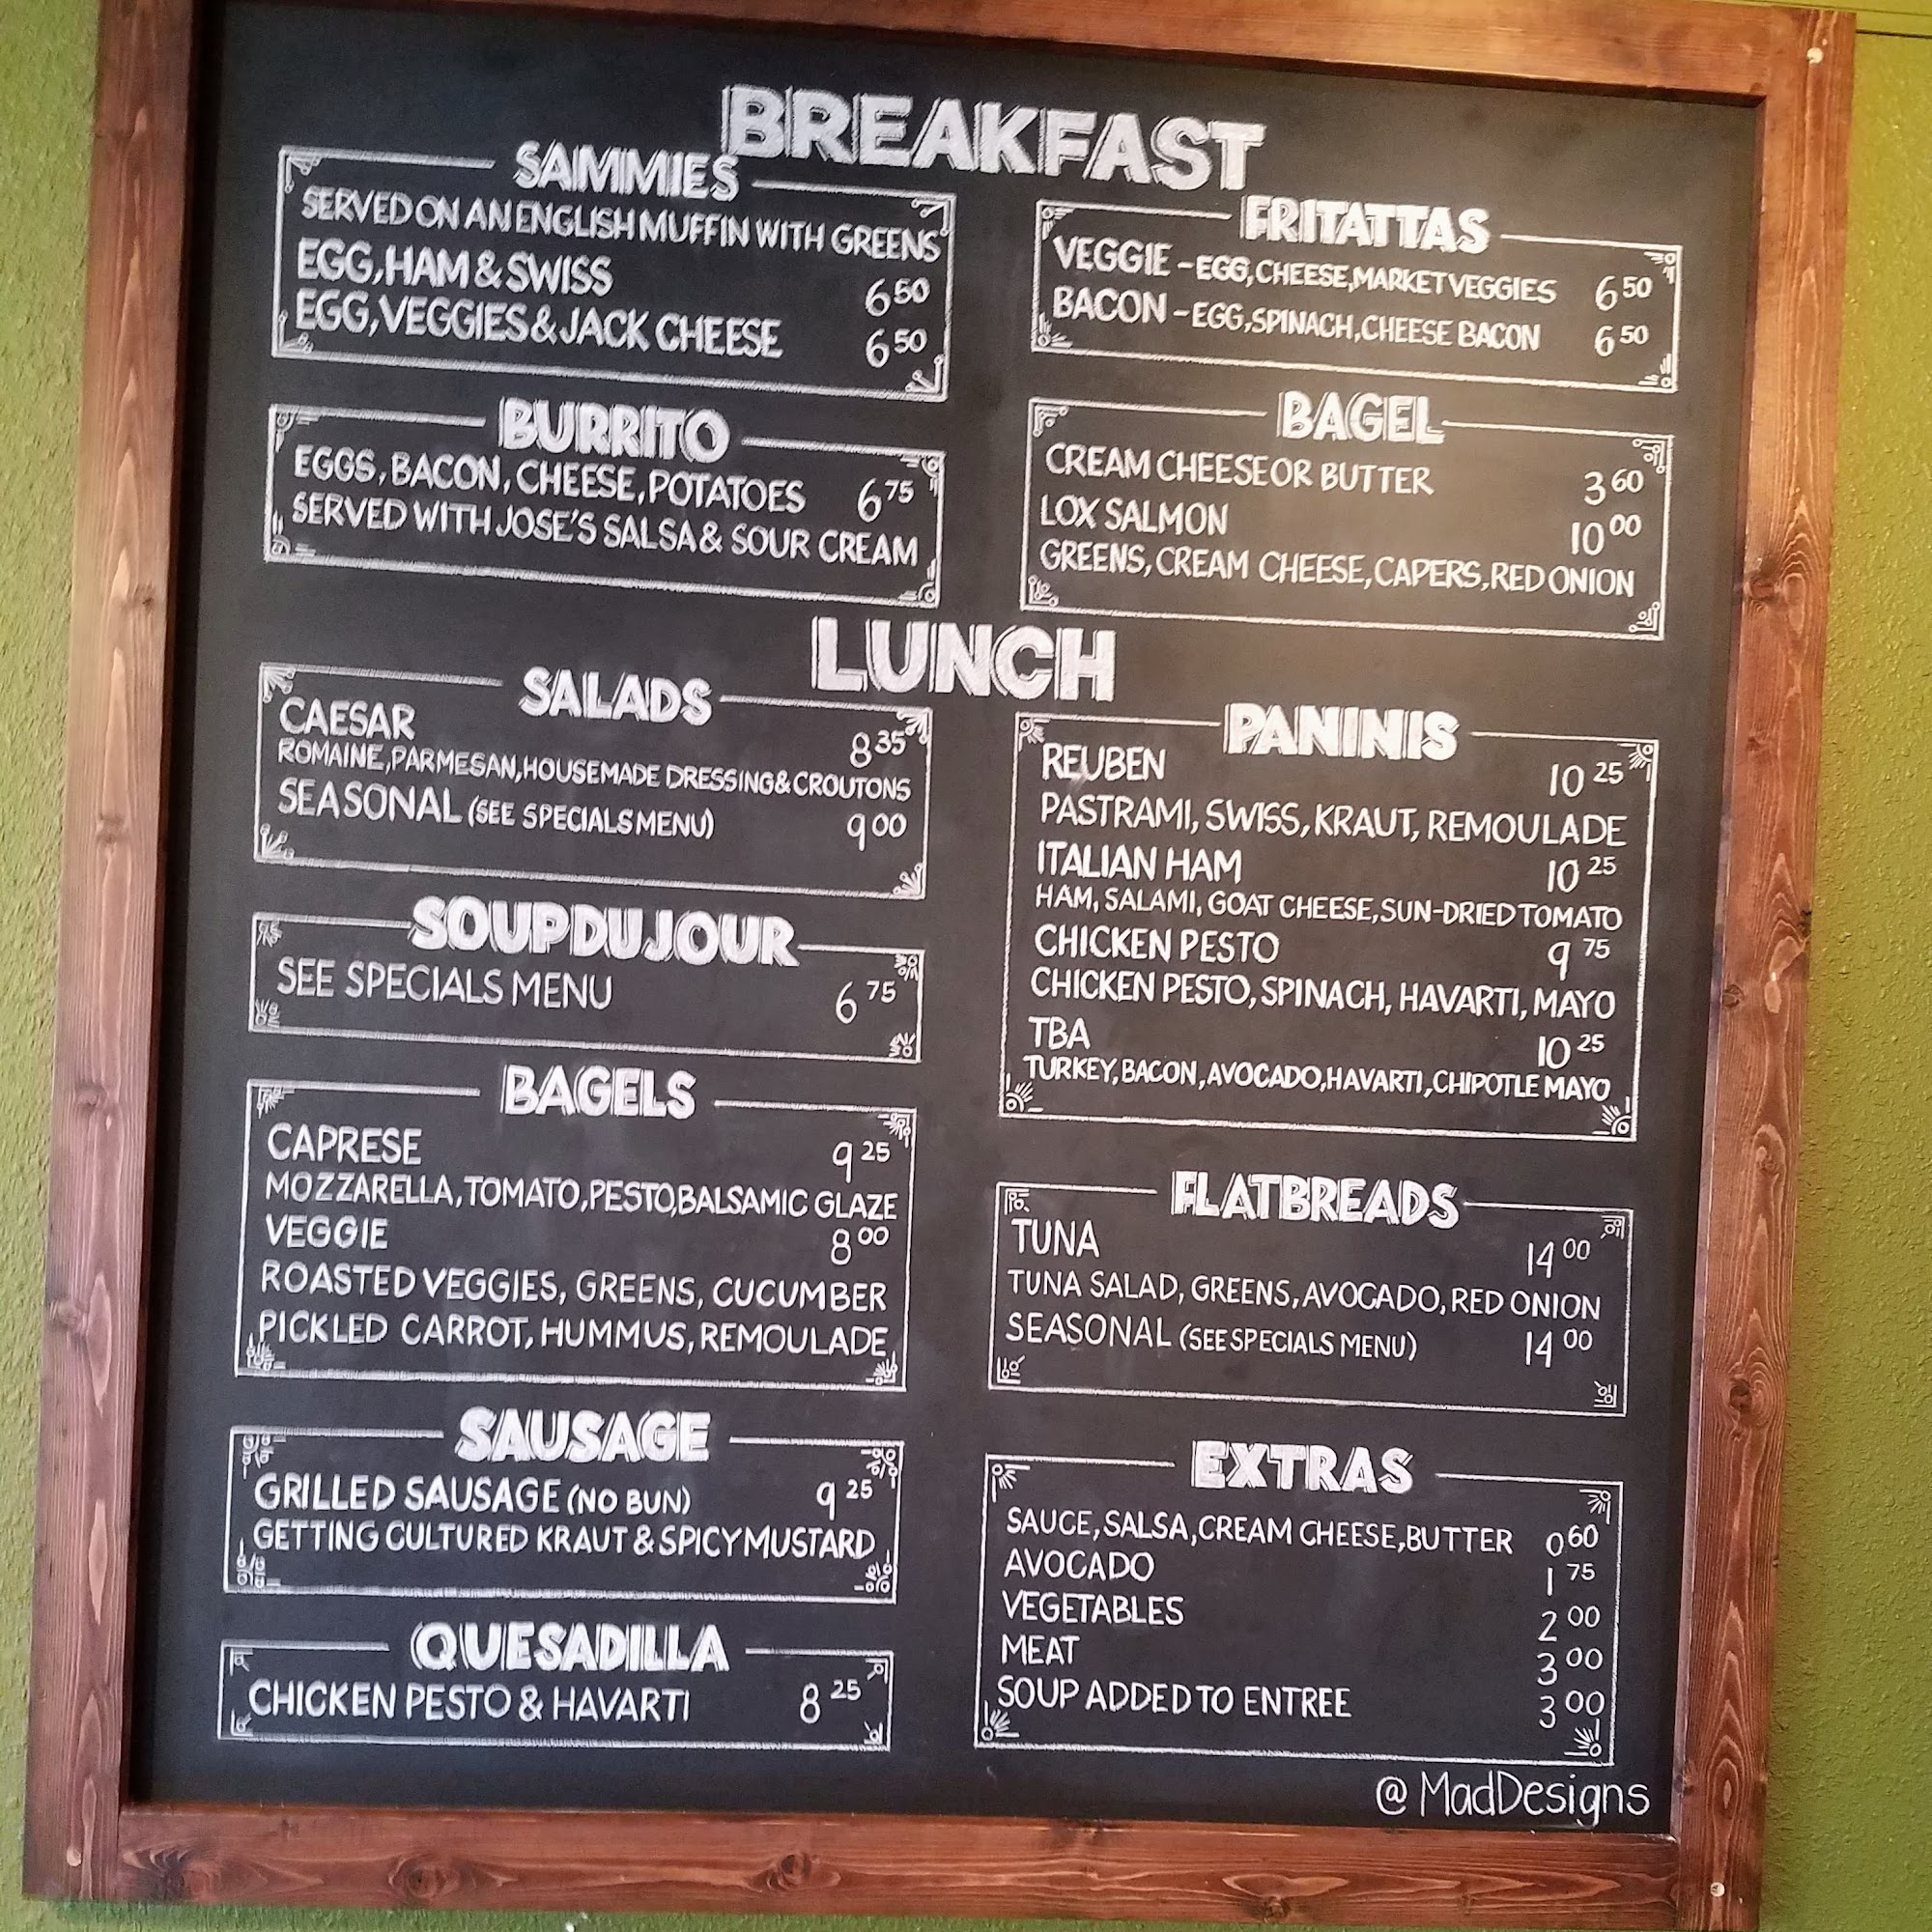 BREAKFAST
SAMMIES
SERVED ON AN ENGLISH MUFFIN WITH GREENS
EGG, HAM & SWISS 6 50
EGG, VEGGIES & JACK CHEESE 6 50
BURRITO
EGGS, BACON, CHEESE, POTATOES 6 75
SERVED WITH JOSE'S SALSA & SOUR CREAM
FRITATTAS
VEGGIE - EGG, CHEESE, MARKET VEGGIES 6 50
BACON - EGG, SPINACH, CHEESE BACON 6 50
BAGEL
CREAM CHEESE OR BUTTER 3 60
LOX SALMON 10 00
GREENS, CREAM CHEESE, CAPERS, RED ONION
LUNCH
SALADS
CAESAR 8 35
ROMAINE, PARMESAN, HOUSEMADE DRESSING & CROUTONS
SEASONAL (SEE SPECIALS MENU) 9 00
SOUP DU JOUR
SEE SPECIALS MENU 6 75
BAGELS
CAPRESE 9 25
MOZZARELLA, TOMATO, PESTO, BALSAMIC GLAZE
VEGGIE 8 00
ROASTED VEGGIES, GREENS, CUCUMBER
PICKLED CARROT, HUMMUS, REMOULADE
SAUSAGE
GRILLED SAUSAGE (NO BUN) 9 25
GETTING CULTURED KRAUT & SPICY MUSTARD
QUESADILLA
CHICKEN PESTO & HAVARTI 8 25
PANINIS
REUBEN 10 25
PASTRAMI, SWISS, KRAUT, REMOULADE
ITALIAN HAM 10 25
HAM, SALAMI, GOAT CHEESE, SUN-DRIED TOMATO
CHICKEN PESTO 9 75
CHICKEN PESTO, SPINACH, HAVARTI, MAYO
TBA 10 25
TURKEY, BACON, AVOCADO, HAVARTI, CHIPOTLE MAYO
FLATBREADS
TUNA 14 00
TUNA SALAD, GREENS, AVOCADO, RED ONION
SEASONAL (SEE SPECIALS MENU) 14 00
EXTRAS
SAUCE, SALSA, CREAM CHEESE, BUTTER 0 60
AVOCADO 1 75
VEGETABLES 2 00
MEAT 3 00
SOUP ADDED TO ENTREE 3 00
@ MadDesigns